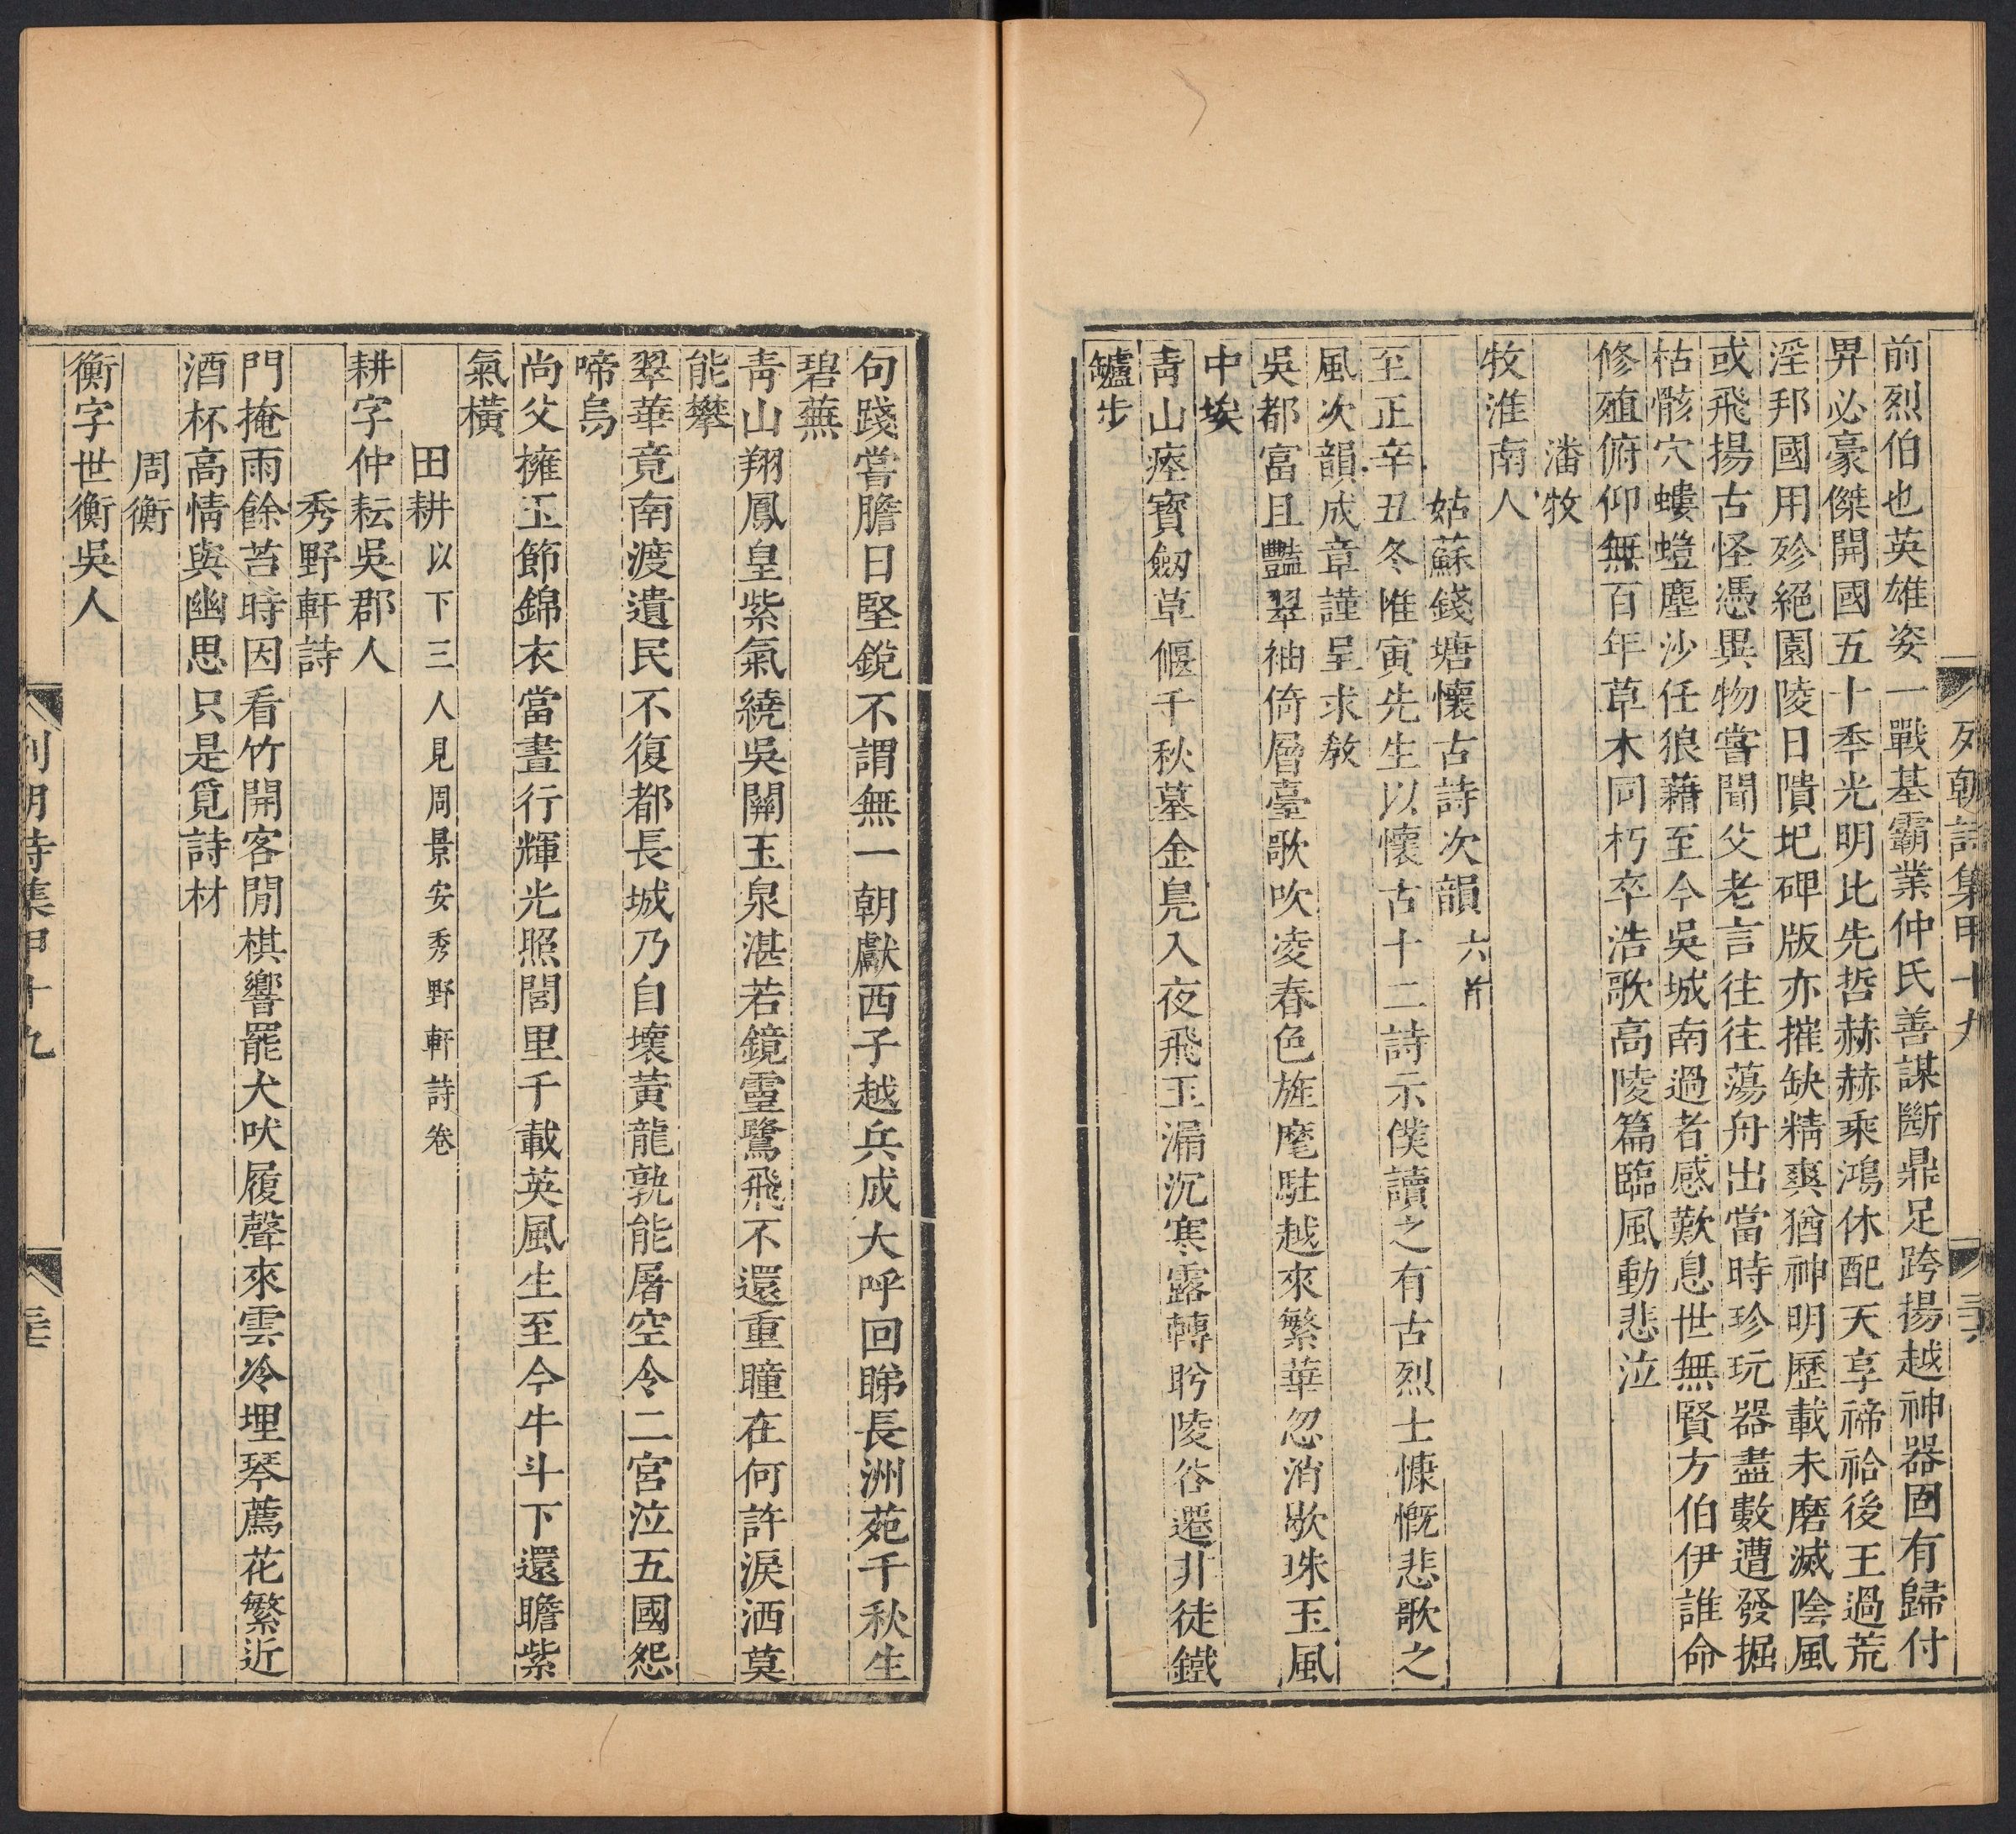 列朝詩集甲十九
三六
前烈伯也英雄姿一戰基霸業仲氏善謀斷鼎足跨揚越神器固有歸付
畀必豪傑開國五十季光明比先哲赫赫乘鴻休配天享禘祫後王過荒
淫邦國用殄絕園陵日隤圮碑版亦摧缺精爽猶神明歷載未磨滅陰風
或飛揚古怪憑異物嘗聞父老言往往蕩舟出當時珍玩器盡數遭發掘
枯骸穴螻螘塵沙任狼藉至今吳城南過者感歎息世無賢方伯伊誰命
修殖俯仰無百年草木同朽卒浩歌高陵篇臨風動悲泣
潘牧
牧淮南人
姑蘇錢塘懷古詩次韻六首
至正辛丑冬惟寅先生以懷古十二詩示僕讀之有古烈士慷慨悲歌之
風次韻成章謹呈求教
吳都富且豔翠袖倚層臺歌吹凌春色旌麾駐越來繁華忽消歇珠玉風
中埃
靑山瘞寶劔草偃千秋墓金鳧入夜飛玉漏沉寒露轉盻陵谷遷非徒鐵
鑪步
句踐嘗膽日堅銳不謂無一朝獻西子越兵成大呼回睇長洲苑千秋生
碧蕪
靑山翔鳳皇紫氣繞吳關玉泉湛若鏡靈鷲飛不還重瞳在何許淚洒莫
能攀
翠華竟南渡遺民不復都長城乃自壞黃龍孰能屠空令二宮泣五國怨
啼烏
尚父擁玉節錦衣當晝行輝光照閭里千載英風生至今牛斗下還瞻紫
氣橫
田耕以下三人見周景安秀野軒詩卷
耕字仲耘吳郡人
秀野軒詩
門掩雨餘苔時因看竹開客閒棋響罷犬吠履聲來雲冷埋琴薦花繁近
酒杯高情與幽思只是覓詩材
周衡
衡字世衡吳人
列朝詩集甲十九
三七